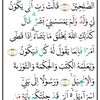 الصّٰلِحِيْنَ ۝ قَالَتْ رَبِّ اَنّٰى يَكُوْنُ
لِيْ وَلَدٌ وَّلَمْ يَمْسَسْنِيْ بَشَرٌ ۗ قَالَ
كَذٰلِكِ اللّٰهُ يَخْلُقُ مَا يَشَآءُ ۗ اِذَا قَضٰٓى
اَمْرًا فَاِنَّمَا يَقُوْلُ لَهٗ كُنْ فَيَكُوْنُ ۝
وَيُعَلِّمُهُ الْكِتٰبَ وَالْحِكْمَةَ وَالتَّوْرٰىةَ
وَالْاِنْجِيْلَ ۝ وَرَسُوْلًا اِلٰى بَنِيْٓ